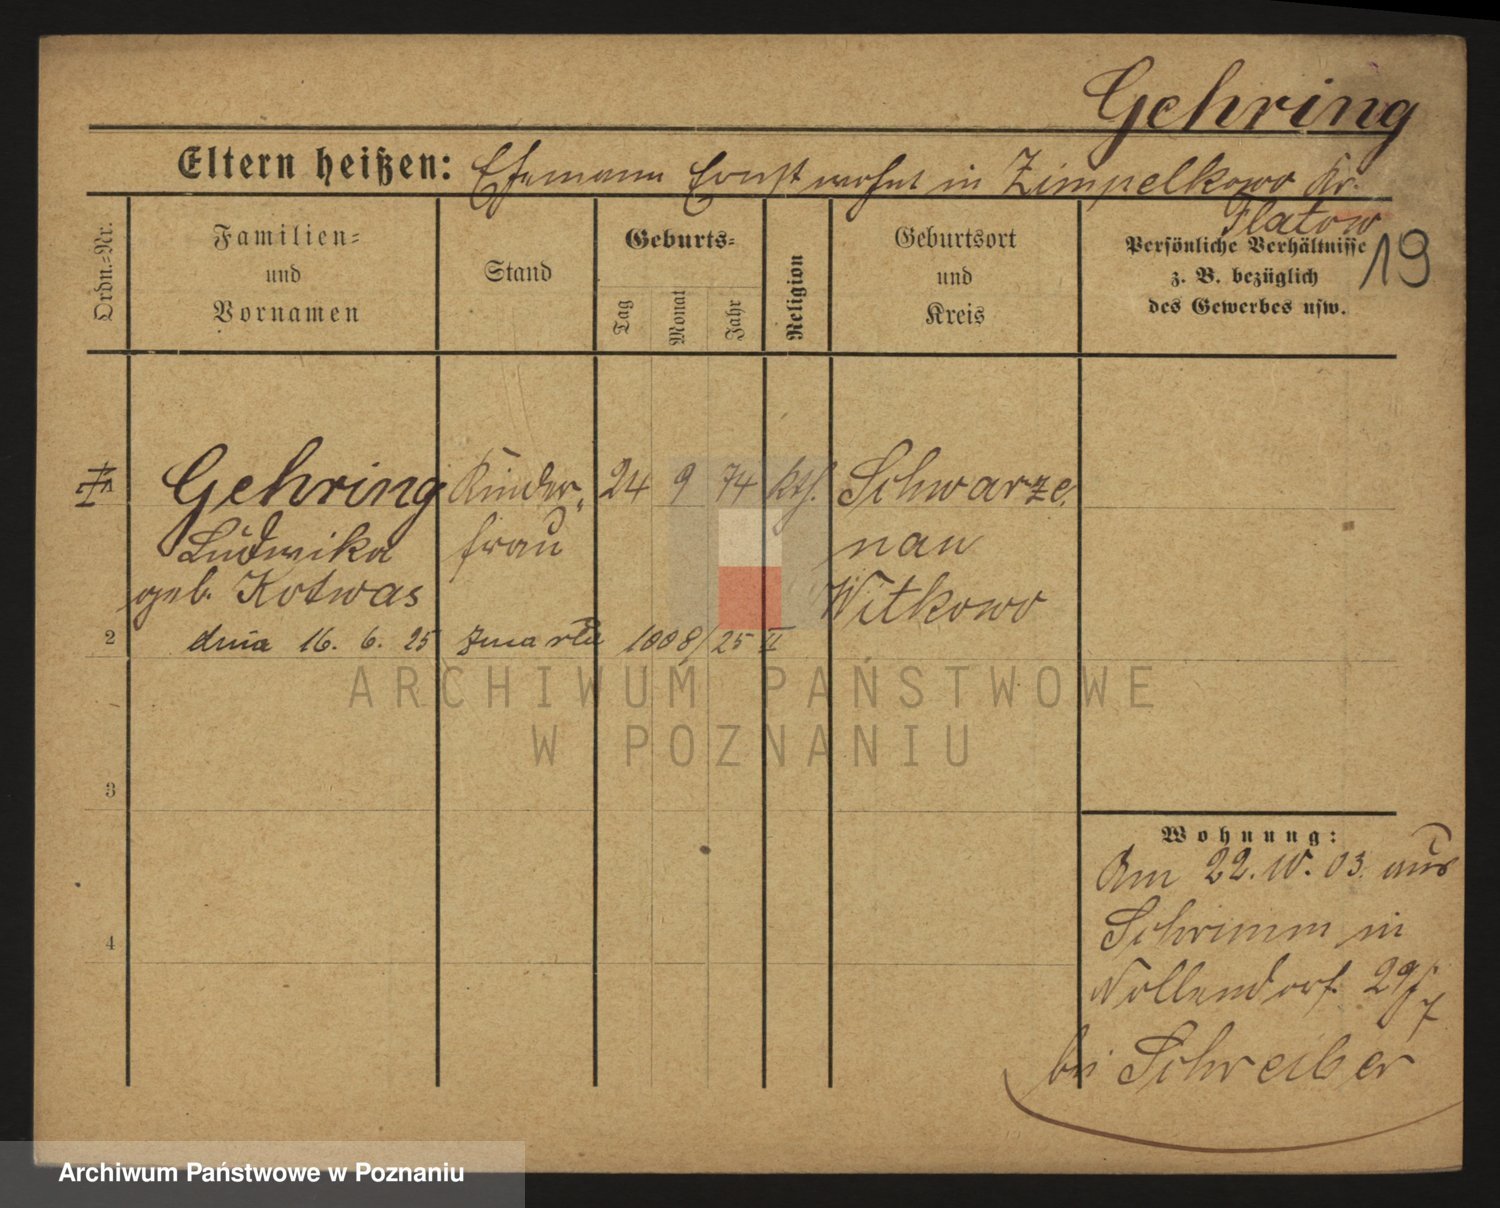 Gehring
Eltern heißen: Ehemann Ernst wohnt in Zimpelkowo Kr.
Flatow
19
Ordn.=Nr.
Familien=
und
Vornamen
Stand
Geburts=
Tag
Monat
Jahr
Religion
Geburtsort
und
Kreis
Persönliche Verhältnisse
z. B. bezüglich
des Gewerbes usw.
Gehring Kinder= 24 9 74 kth. Schwarze
Ludwika frau nau
geb. Kotwas Witkowo
2 dnia 16. 6. 25 zmarła 1008/25 II
ARCHIWUM PAŃSTWOWE
W POZNANIU
3
Wohnung:
Am 22. IV. 03. aus
Schrimm in
4
Nollendorf. 29/7
bei Schreiber
Archiwum Państwowe w Poznaniu